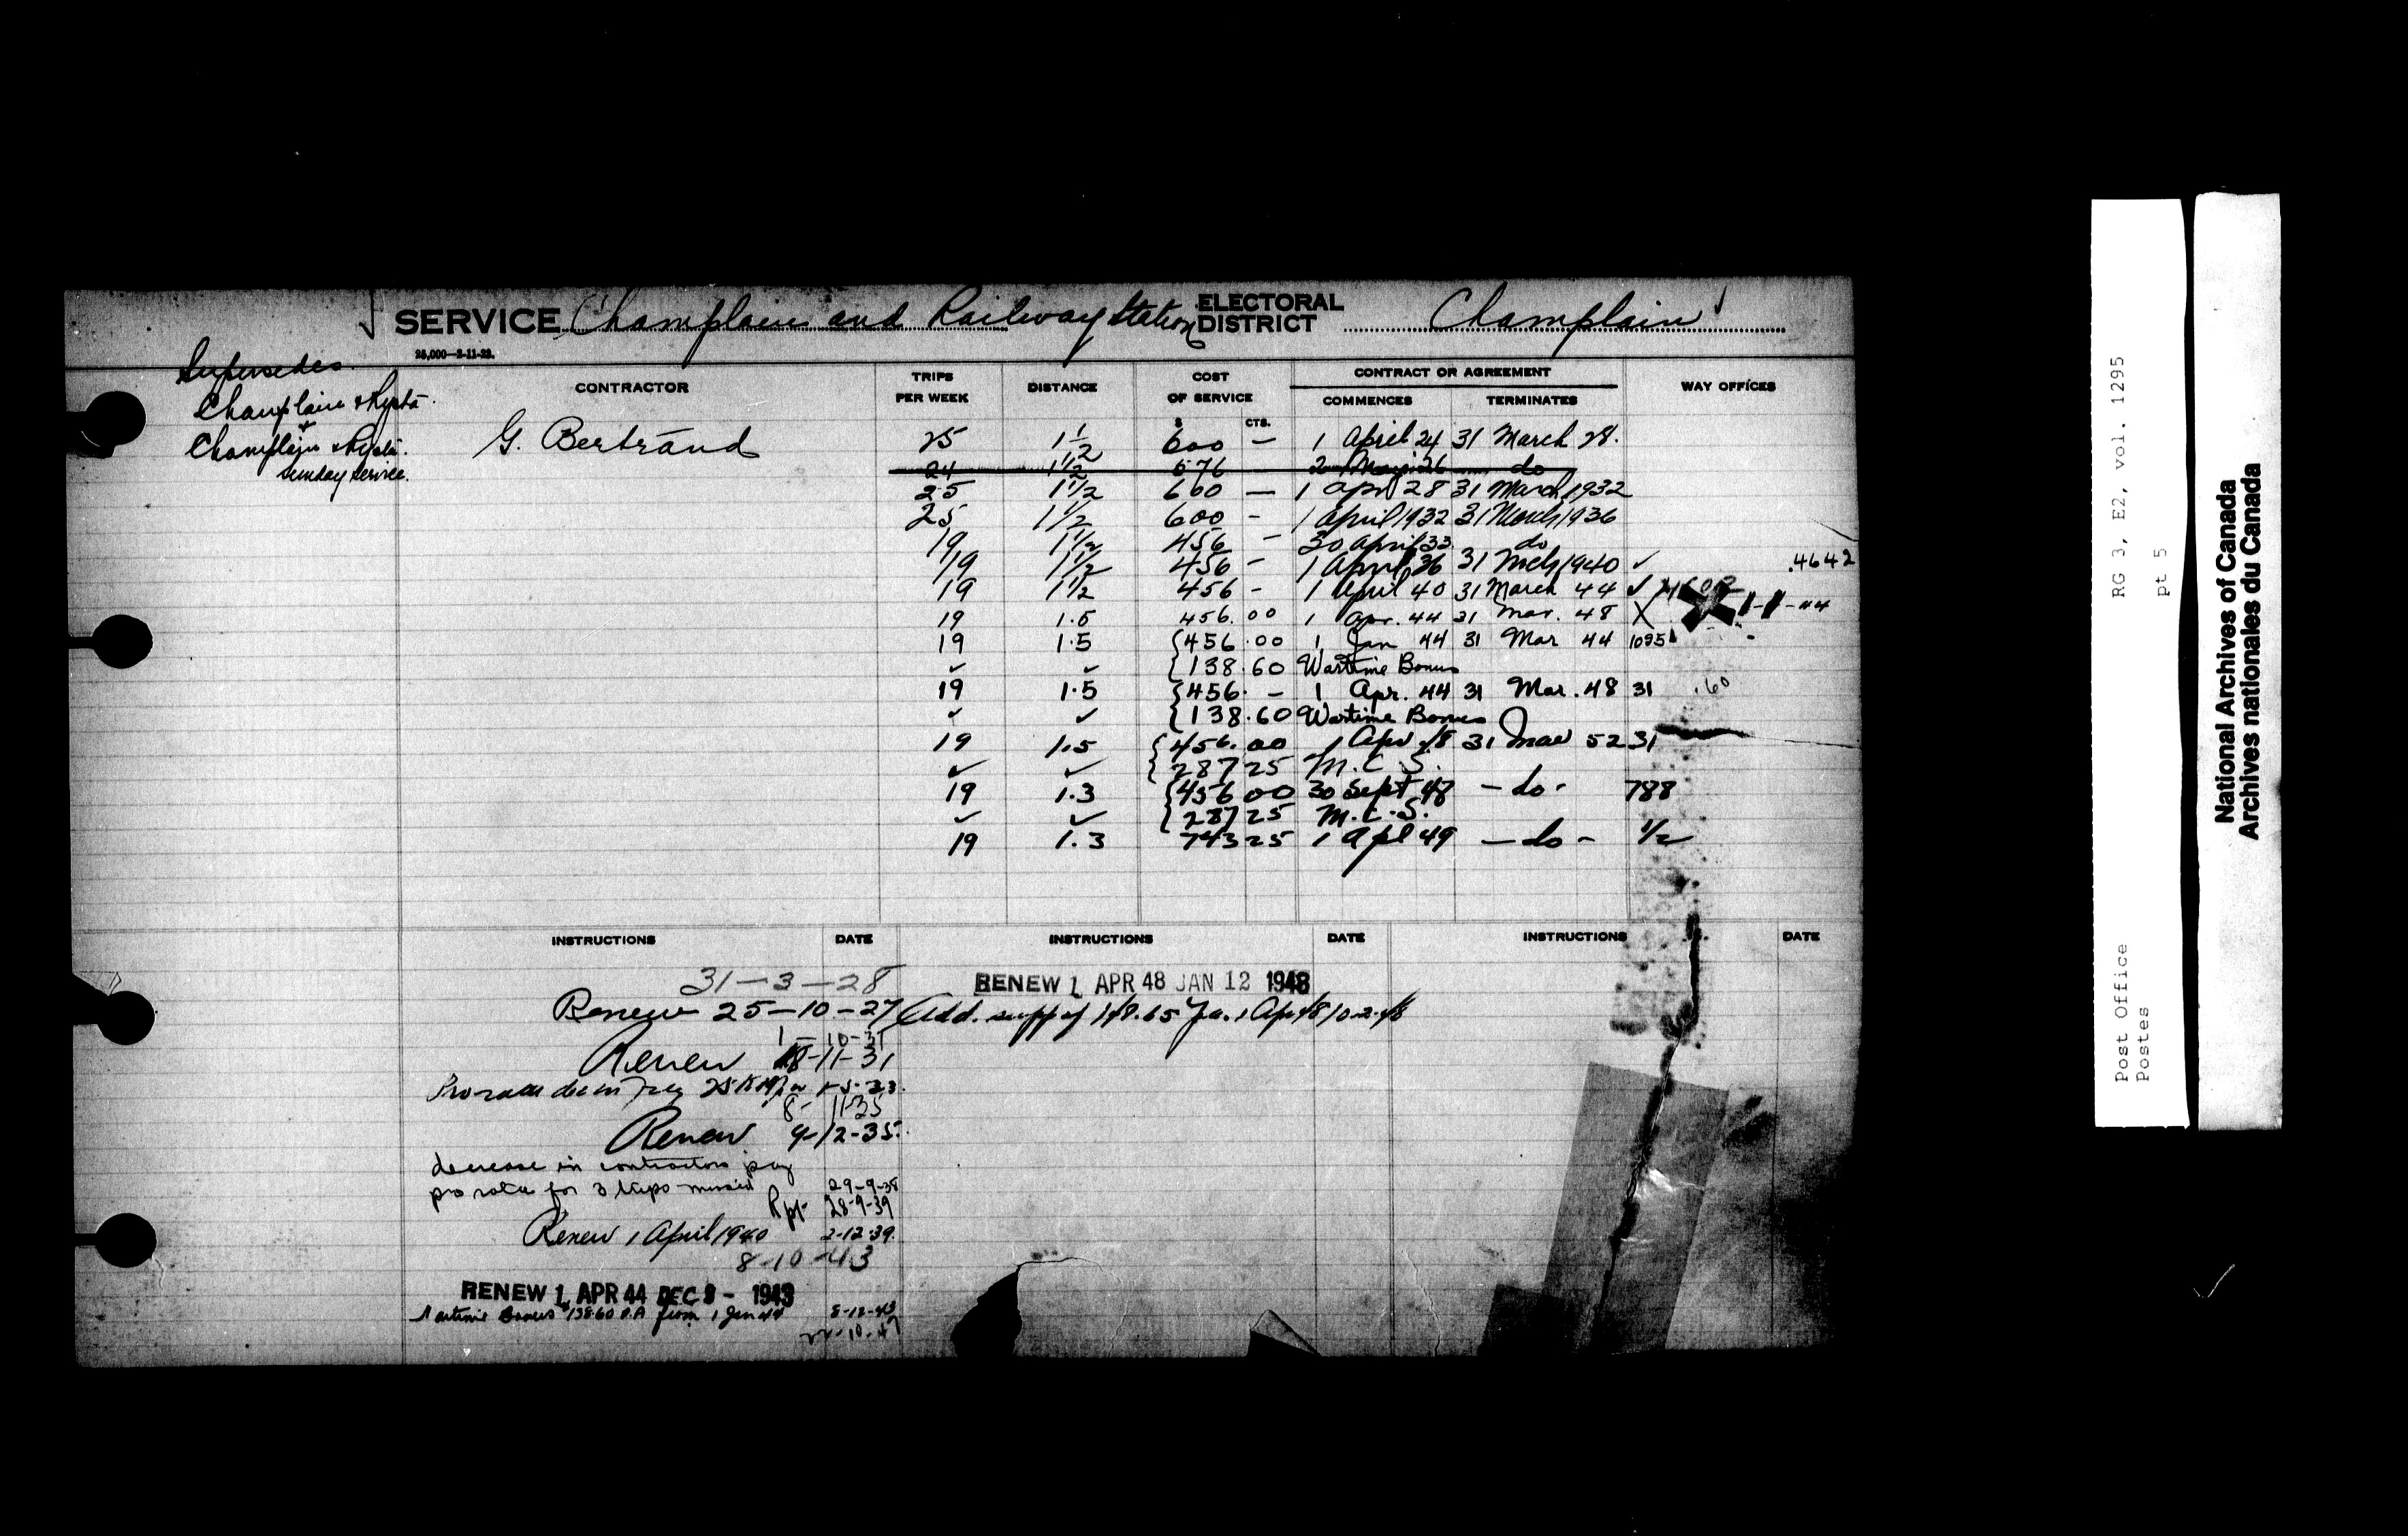 SERVICE Champlain and Railway Station ELECTORAL DISTRICT Champlain
25,000—2-11-22.
Supersedes
Champlain & Ry Sta
+
Champlain & Ry Sta.
Sunday Service.
CONTRACTOR TRIPS PER WEEK DISTANCE COST OF SERVICE CONTRACT OR AGREEMENT WAY OFFICES
COMMENCES TERMINATES
$ CTS.
G. Bertrand 25 1 1/2 600 — 1 April 24 31 March 28.
24 1 1/2 576 2 May 26 do
25 1 1/2 600 — 1 Apr 28 31 March 1932
25 1 1/2 600 - 1 April 1932 31 March 1936
19 1 1/2 456 - 30 April 33 do
19 1 1/2 456 - 1 April 36 31 Mch 1940 ✓ .4642
19 1 1/2 456 - 1 April 40 31 March 44 ✓
19 1.5 456.00 1 Apr. 44 31 Mar. 48 X 1-1-44
19 1.5 {456.00 1 Jan 44 31 Mar 44 1095
✓ ✓ {138.60 Wartime Bonus
19 1.5 {456. - 1 Apr. 44 31 Mar. 48 31 .60
✓ ✓ {138.60 Wartime Bonus
19 1.5 {456.00 1 Apr 48 31 Mar 52 31
✓ ✓ {287 25 M.C.S.
19 1.3 {456 00 30 Sept 48 - do - 788
✓ ✓ {287 25 M.C.S.
19 1.3 743 25 1 Apl 49 - do - 1/2
INSTRUCTIONS DATE INSTRUCTIONS DATE INSTRUCTIONS DATE
31-3-28
Renew 25-10-27
1-10-31
Renew 18-11-31
Pro rata dec in freq 25 to 19 1-5-33.
8-11-35
Renew 9-12-35.
decrease in contractors pay
pro rata for 3 trips missed 29-9-38
Rpt- 28-9-39
Renew 1 April 1940 2-12-39.
8-10-43
RENEW 1 APR 44 DEC 8 - 1943
Wartime Bonus $138.60 P.A from 1 Jan 44 8-12-43
22-10-47
RENEW 1 APR 48 JAN 12 1948
Add. supp of 148.65 p.a. 1 Apr 48 10-2-48
RG 3, E2, vol. 1295
pt 5
Post Office
Postes
National Archives of Canada
Archives nationales du Canada